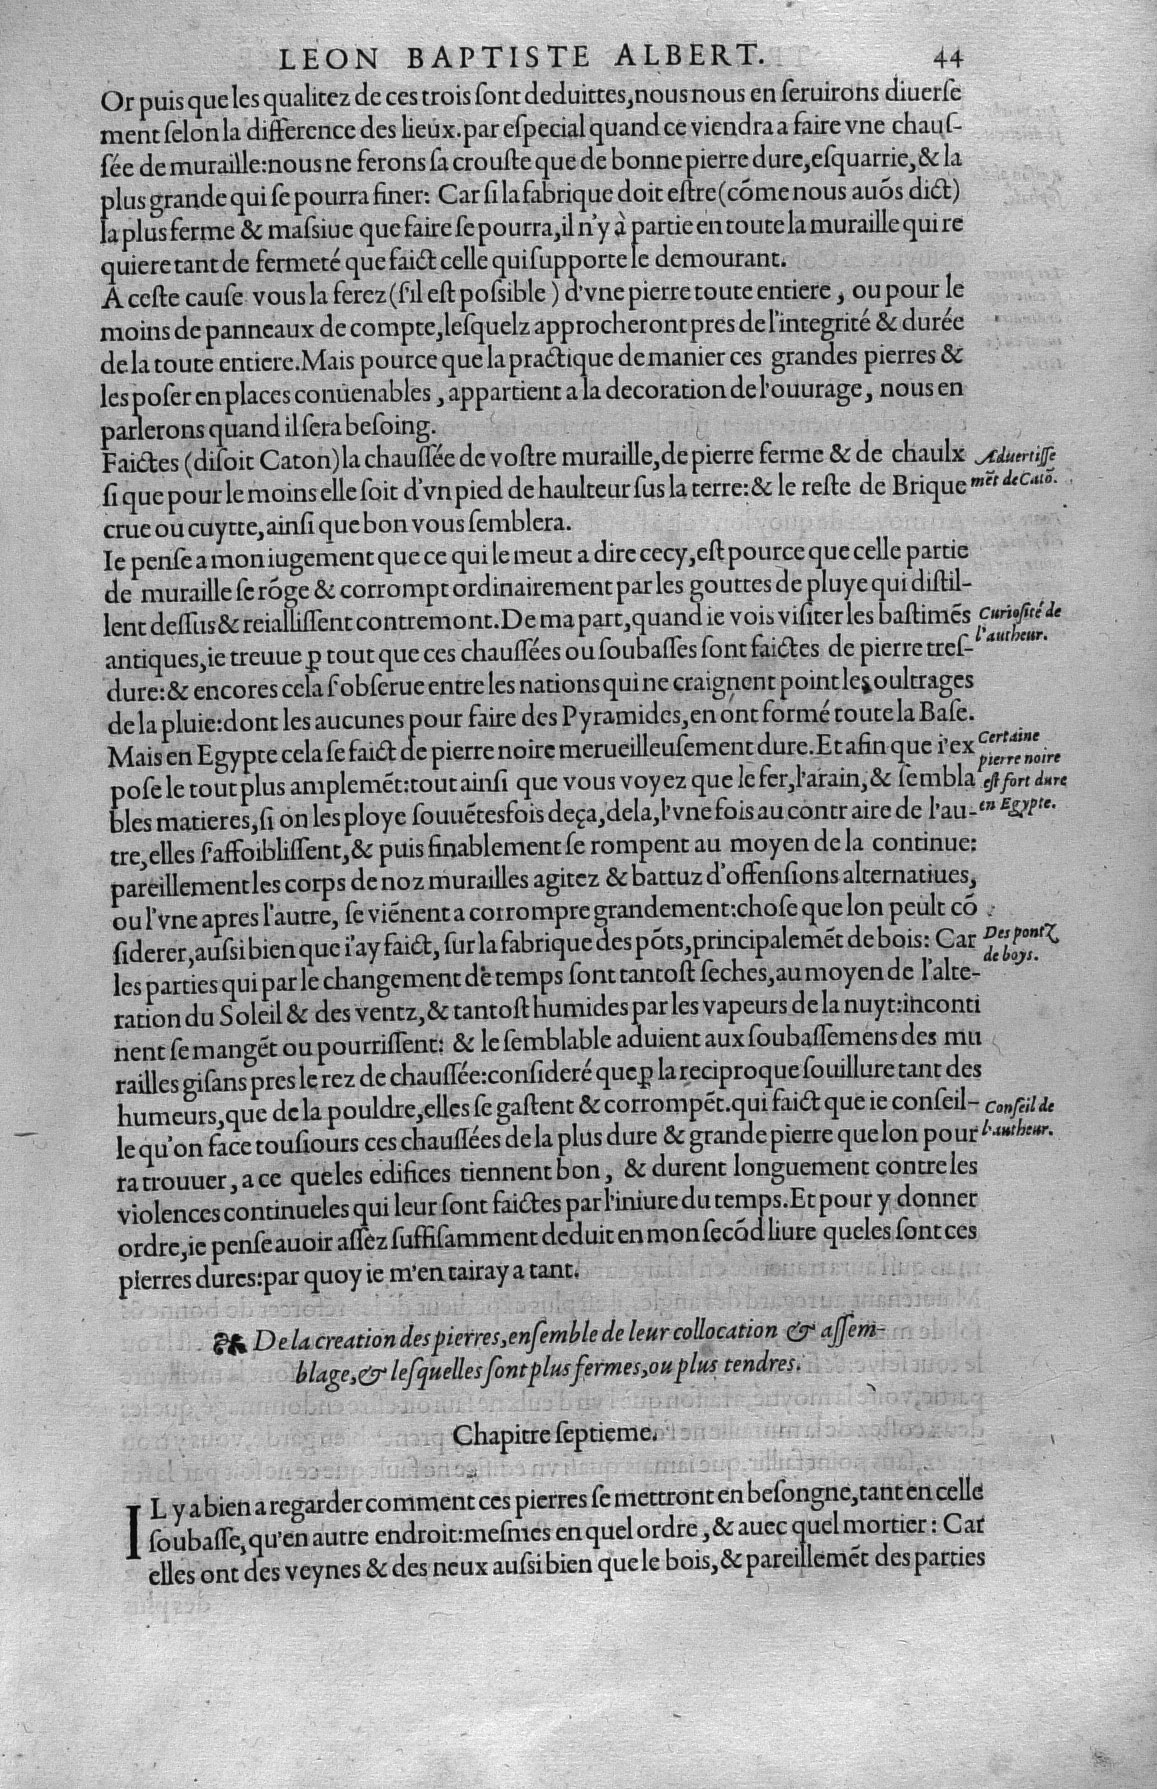 LEON BAPTISTE ALBERT. 44
Or puis que les qualitez de ces trois ſont deduittes,nous nous en ſeruirons diuerſe
ment ſelon la difference des lieux.par eſpecial quand ce viendra a faire vne chauſ-
ſée de muraille:nous ne ferons ſa crouſte que de bonne pierre dure,eſquarrie,& la
plus grande qui ſe pourra finer: Car ſi la fabrique doit eſtre(cõme nous auõs dict)
la plus ferme & maſsiue que faire ſe pourra,il n'y à partie en toute la muraille qui re
quiere tant de fermeté que faict celle qui ſupporte le demourant.
A ceſte cauſe vous la ferez(ſ'il eſt poſsible) d'vne pierre toute entiere, ou pour le
moins de panneaux de compte,leſquelz approcheront pres de l'integrité & durée
de la toute entiere.Mais pource que la practique de manier ces grandes pierres &
les poſer en places conuenables, appartient a la decoration de l'ouurage, nous en
parlerons quand il ſera beſoing.
Faictes (diſoit Caton)la chauſſée de voſtre muraille,de pierre ferme & de chaulx
Aduertiſſe
mẽt de Catõ.
ſi que pour le moins elle ſoit d'vn pied de haulteur ſus la terre:& le reſte de Brique
crue ou cuytte,ainſi que bon vous ſemblera.
Ie penſe a mon iugement que ce qui le meut a dire cecy,eſt pource que celle partie
de muraille ſe rõge & corrompt ordinairement par les gouttes de pluye qui diſtil-
lent deſſus & reialliſſent contremont.De ma part,quand ie vois viſiter les baſtimẽs
Curioſité de
l'autheur.
antiques,ie treuue ꝑ tout que ces chauſſées ou ſoubaſſes ſont faictes de pierre treſ-
dure:& encores cela ſ'obſerue entre les nations qui ne craignent point les oultrages
de la pluie:dont les aucunes pour faire des Pyramides,en ont formé toute la Baſe.
Mais en Egypte cela ſe faict de pierre noire merueilleuſement dure.Et afin que i'ex
Certaine
pierre noire
eſt fort dure
en Egypte.
poſe le tout plus amplemẽt:tout ainſi que vous voyez que le fer,l'arain,& ſembla
bles matieres,ſi on les ploye ſouuẽtesfois deça,dela,l'vne fois au contraire de l'au-
tre,elles ſ'affoibliſſent,& puis finablement ſe rompent au moyen de la continue:
pareillement les corps de noz murailles agitez & battuz d'offenſions alternatiues,
ou l'vne apres l'autre, ſe viẽnent a corrompre grandement:choſe que lon peult cõ
ſiderer,auſsi bien que i'ay faict, ſur la fabrique des põts,principalemẽt de bois: Car
Des pontz
de boys.
les parties qui par le changement de temps ſont tantoſt ſeches,au moyen de l'alte-
ration du Soleil & des ventz,& tantoſt humides par les vapeurs de la nuyt:inconti
nent ſe mangẽt ou pourriſſent: & le ſemblable aduient aux ſoubaſſemens des mu
railles giſans pres le rez de chauſſée:conſideré que ꝑ la reciproque ſouillure tant des
humeurs,que de la pouldre,elles ſe gaſtent & corrompẽt.qui faict que ie conſeil-
Conſeil de
l'autheur.
le qu'on face touſiours ces chauſſées de la plus dure & grande pierre que lon pour
ra trouuer, a ce que les edifices tiennent bon, & durent longuement contre les
violences continueles qui leur ſont faictes par l'iniure du temps.Et pour y donner
ordre,ie penſe auoir aſſez ſuffiſamment deduit en mon ſecõd liure queles ſont ces
pierres dures:par quoy ie m'en tairay a tant.
De la creation des pierres,enſemble de leur collocation & aſſem-
blage,& leſquelles ſont plus fermes,ou plus tendres.
Chapitre ſeptieme.
IL y a bien a regarder comment ces pierres ſe mettront en beſongne,tant en celle
ſoubaſſe,qu'en autre endroit:meſmes en quel ordre, & auec quel mortier: Car
elles ont des veynes & des neux auſsi bien que le bois,& pareillemẽt des parties